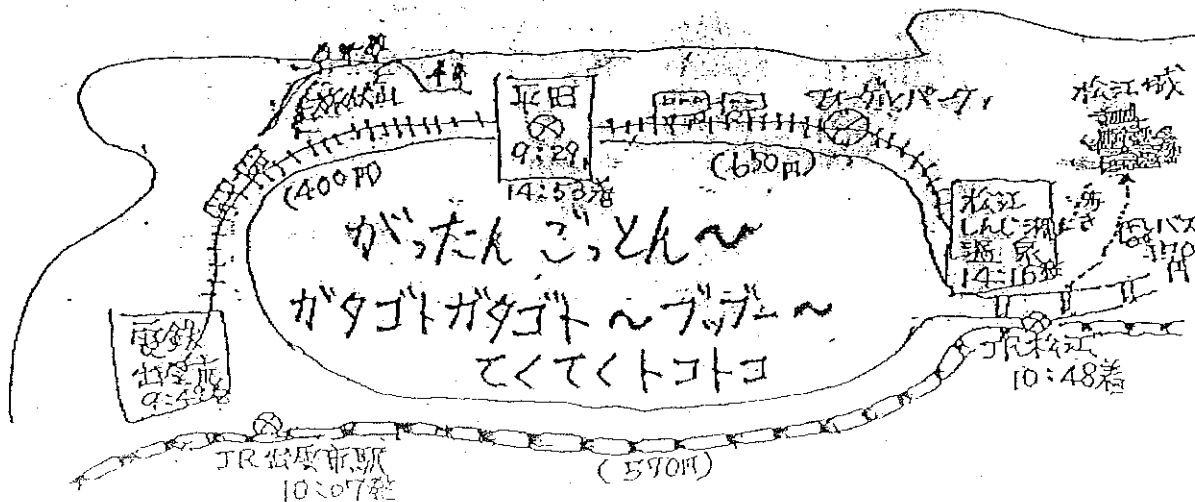 旅伏山
平田
9:29
14:53着
(400円)
(650円)
松江城
松江
しんじ湖
温泉
14:16発
バス
170
円
がったん ごっとん～
ガタゴトガタゴト～ブッブー～
てくてくトコトコ
電鉄
出雲市
JR松江
10:48着
JR出雲市駅
10:07発
(570円)